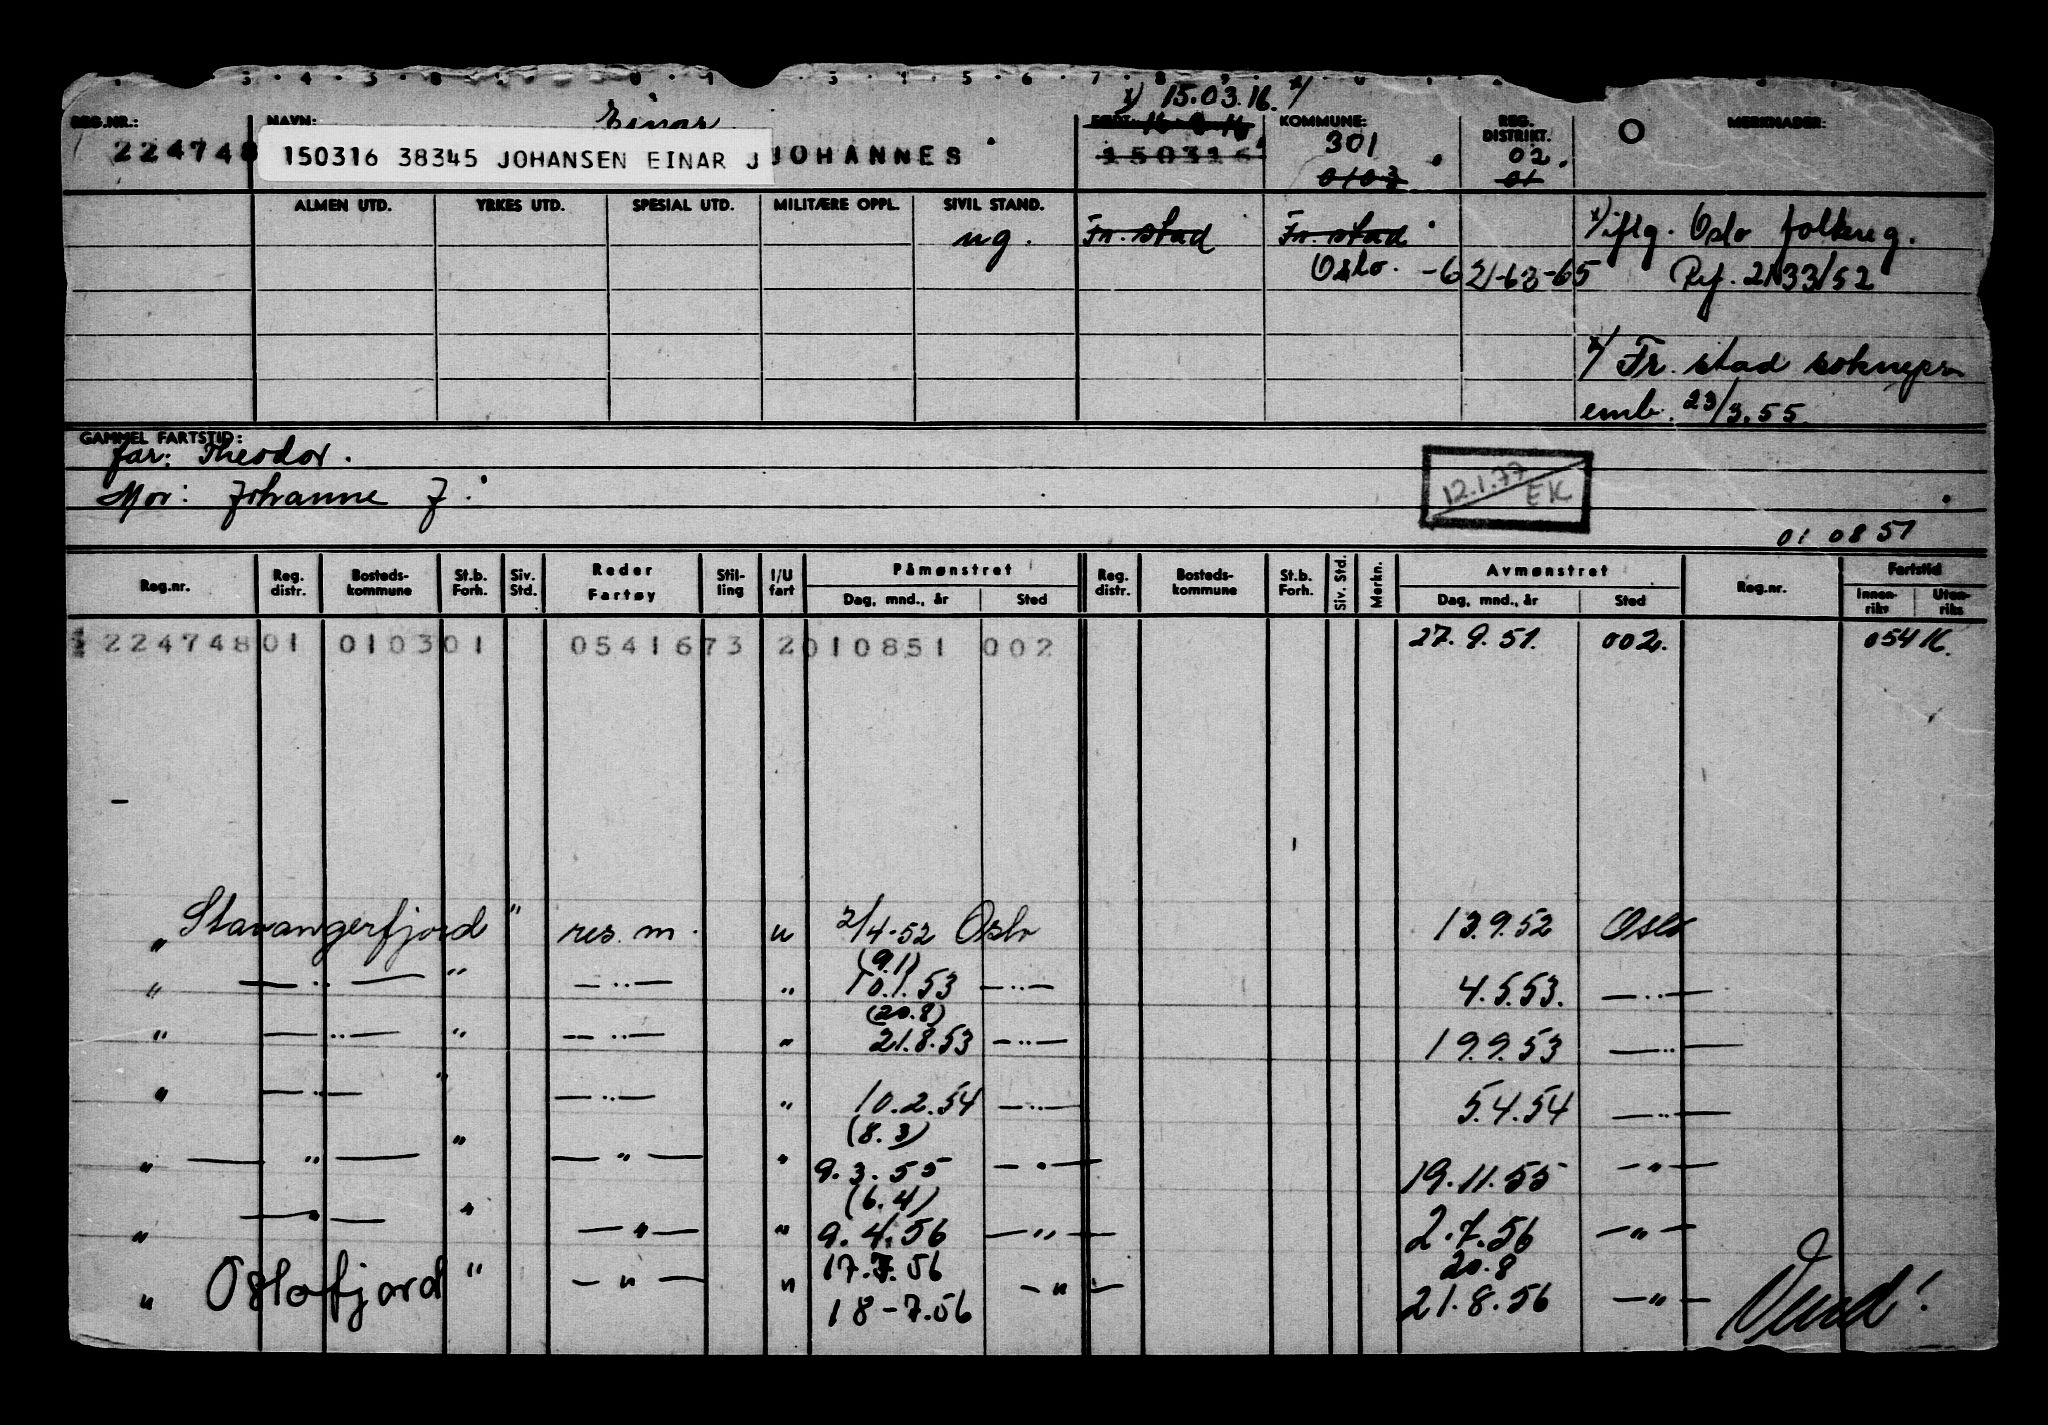 x) 15.03.16. x/
REG.NR.: NAVN: Einar FØDT: 16-3-16 KOMMUNE: REG. DISTRIKT. MERKNADER:
224748 150316 38345 JOHANSEN EINAR J JOHANNES 150316 301 02.
0103 01
ALMEN UTD. YRKES UTD. SPESIAL UTD. MILITÆRE OPPL. SIVIL STAND.
ug. Fr. stad Fr. stad x) iflg. Oslo folkereg.
Oslo. -62-63-65 Ref. 2133/52
x/ Fr. stad sokneprest
emb. 23/3.55.
GAMMEL FARTSTID:
far: Theodor.
Mor: Johanne J.
12.1.77 EK
01 08 51
Reg.nr. Reg. distr. Bosteds- kommune St.b. Forh. Siv. Std. Reder Fartøy Stil- ling I/U fart Påmønstret Dag, mnd., år Sted Reg. distr. Bosteds- kommune St.b. Forh. Siv. Std. Merkn. Avmønstret Dag, mnd., år Sted Reg.nr. Fartstid Innen- riks Uten- riks
224748 01 0103 01 05416 73 2 010851 002 27.9.51. 002. 05416.
" Stavangerfjord " res. m. u 2/4-52 Oslo 13.9.52 Oslo
(9.1)
" — " — " — " — " 10.1.53 — " — 4.5.53. — " —
(20.8)
" — " — " — " — " 21.8.53 — " — 19.9.53 — " —
" — " — " — " — " 10.2.54 — " — 5.4.54 — " —
(8.3)
" — " — " — " — " 9.3.55 — " — 19.11.55 — " —
(6.4)
" — " — " — " — " 9.4.56 — " — 2.7.56 — " —
17.7.56 20.8
" Oslofjord " — " — " 18-7.56 — " — 21.8.56 — " — Vend!